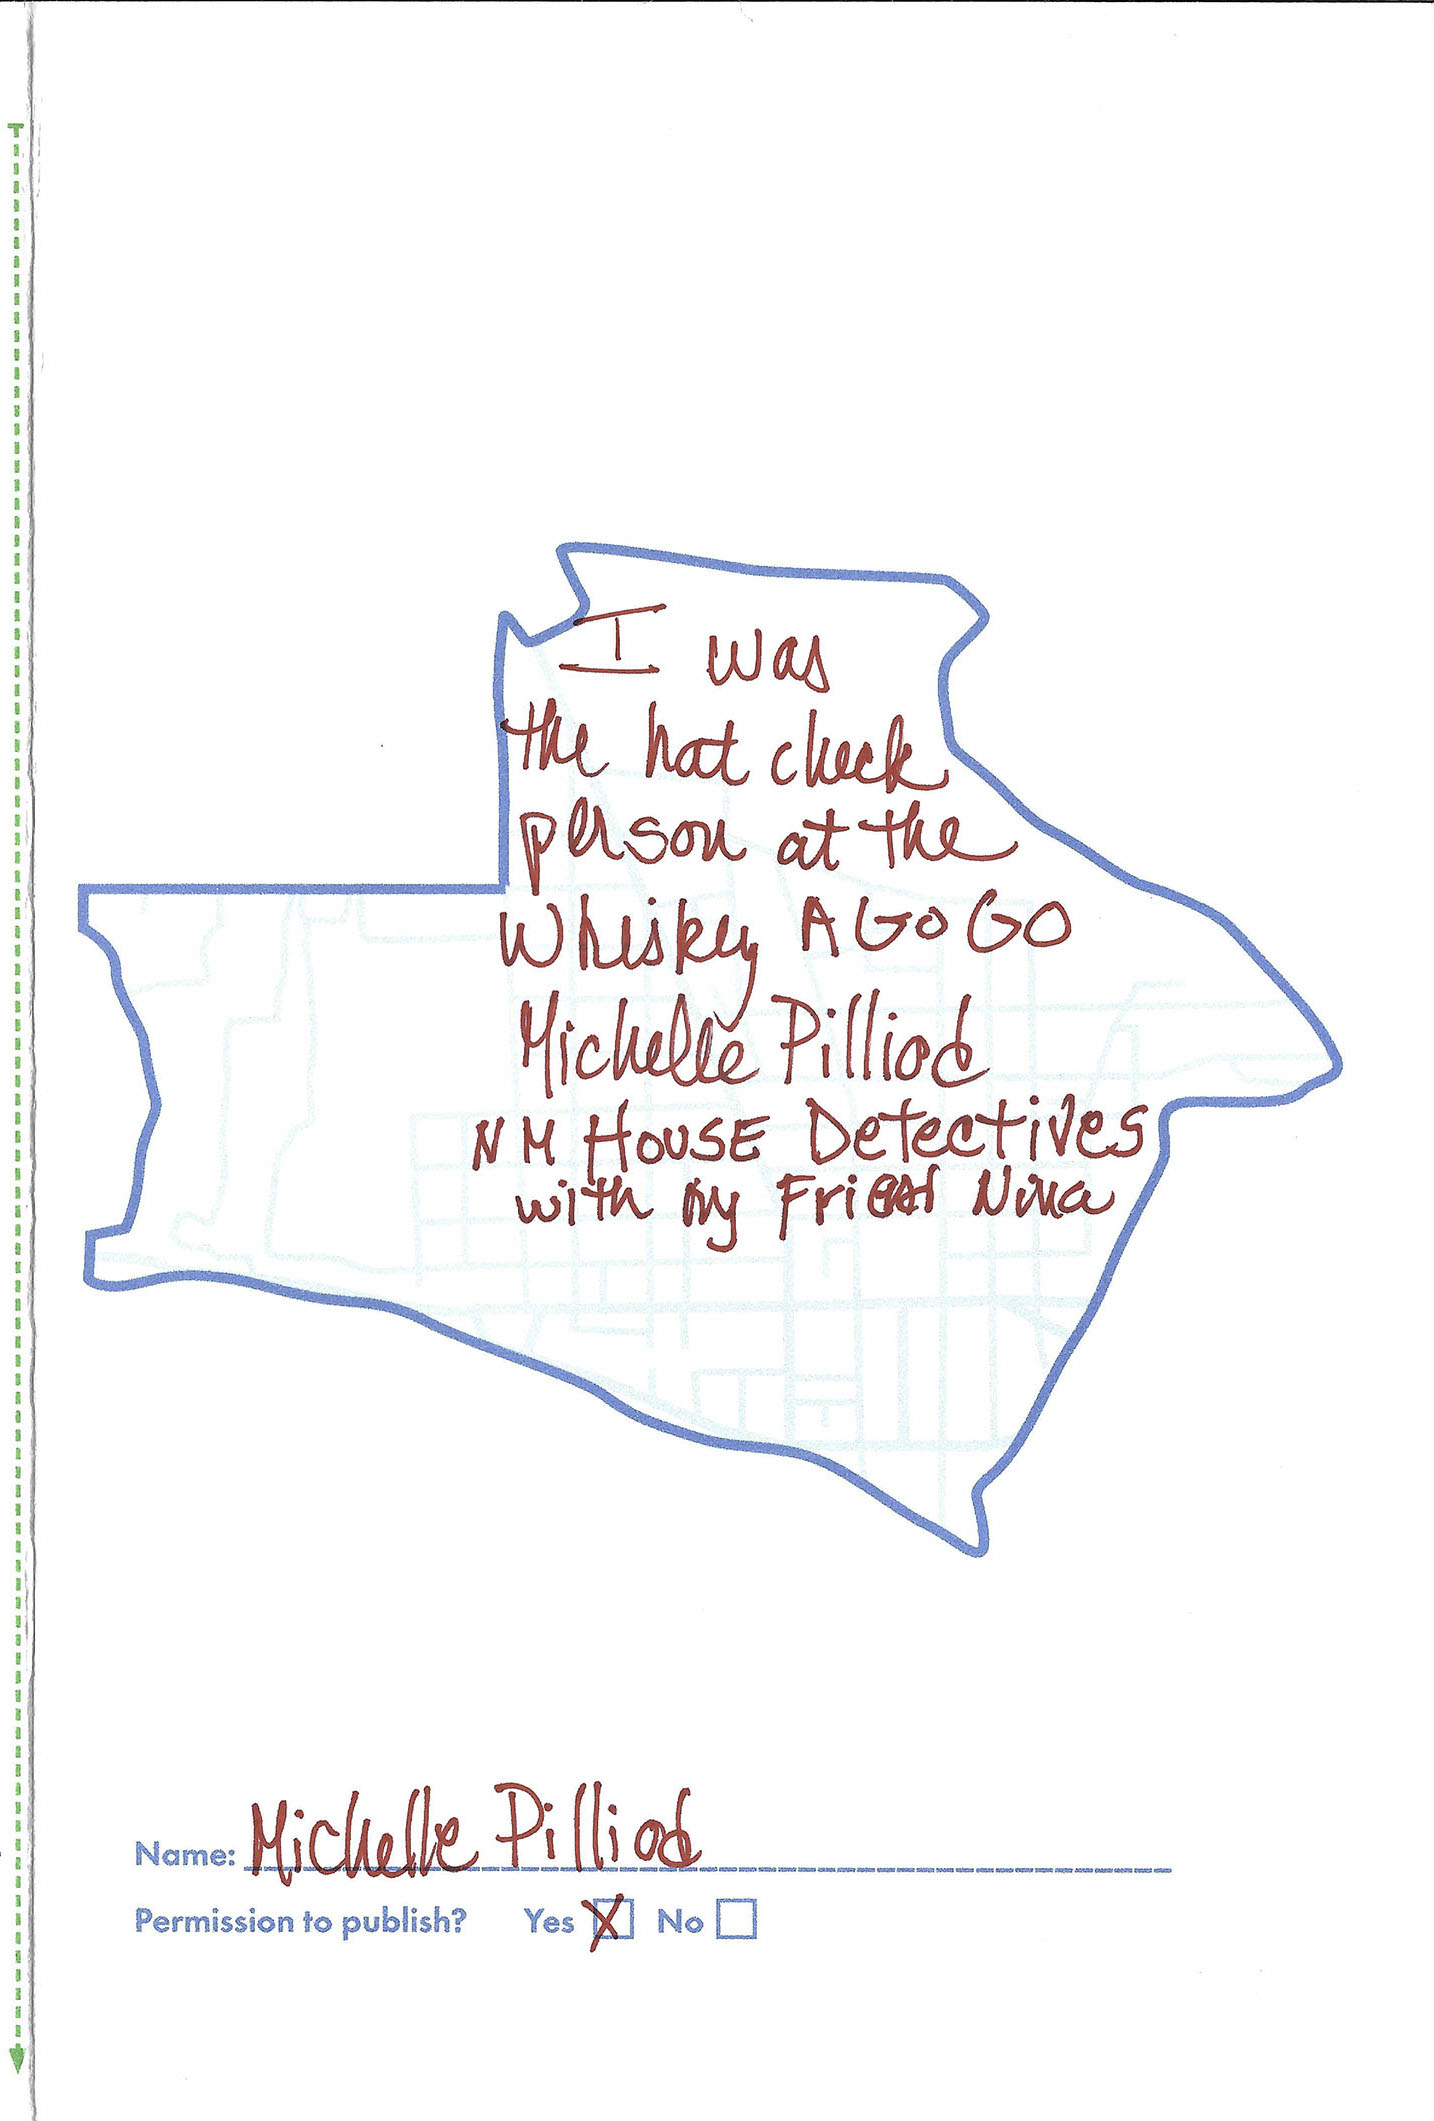 I was
the hat check
person at the
Whiskey A GO GO
Michelle Pilliod
NM HOUSE Detectives
with my Friend Nina
Name: Michelle Pilliod
Permission to publish? Yes X No